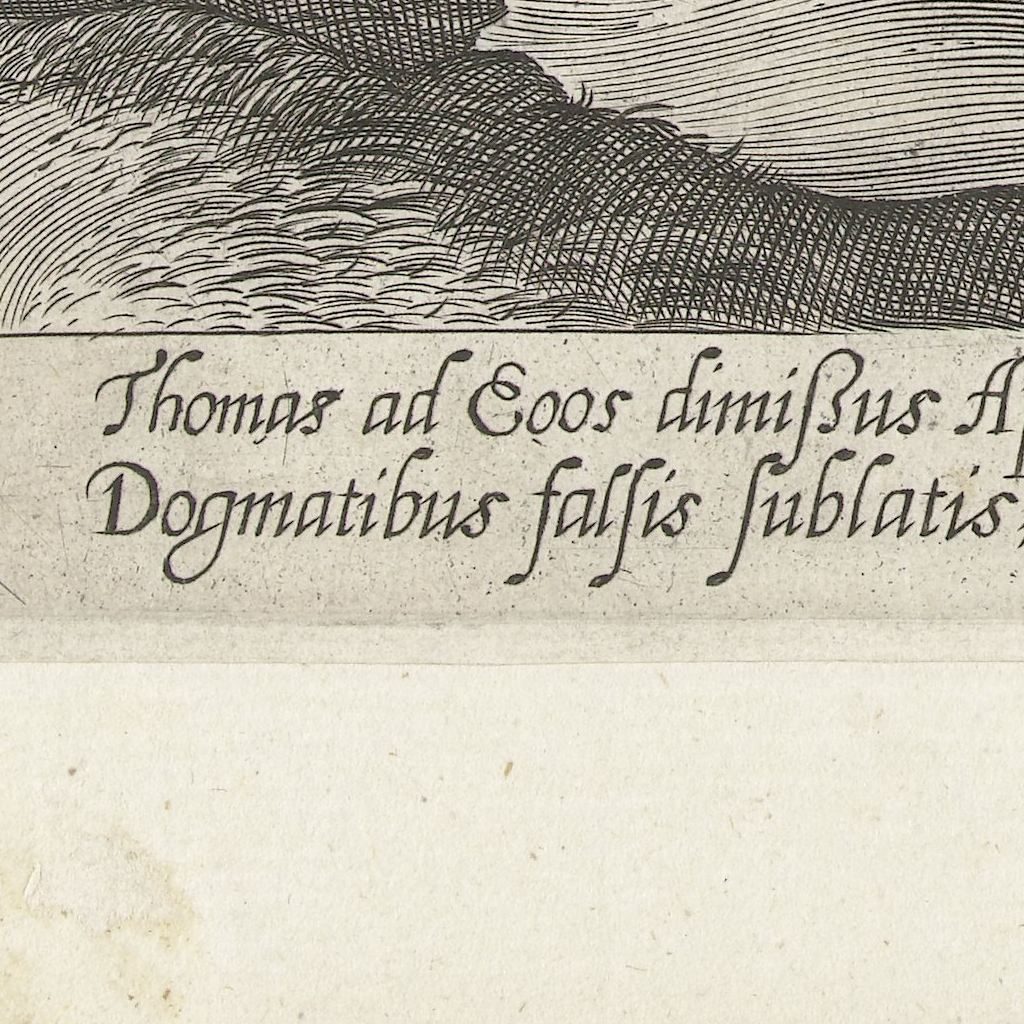 Thomas ad Eoos dimißus A
Dogmatibus falſis ſublatis,